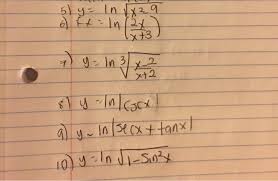 5) y = ln √x² 9
6) Fx = ln (2x/x+3)
7) y = ln ³√x-2/x+2
8) y = ln |cscx|
9) y = ln |secx + tanx|
10) y = ln √1-Sin²x